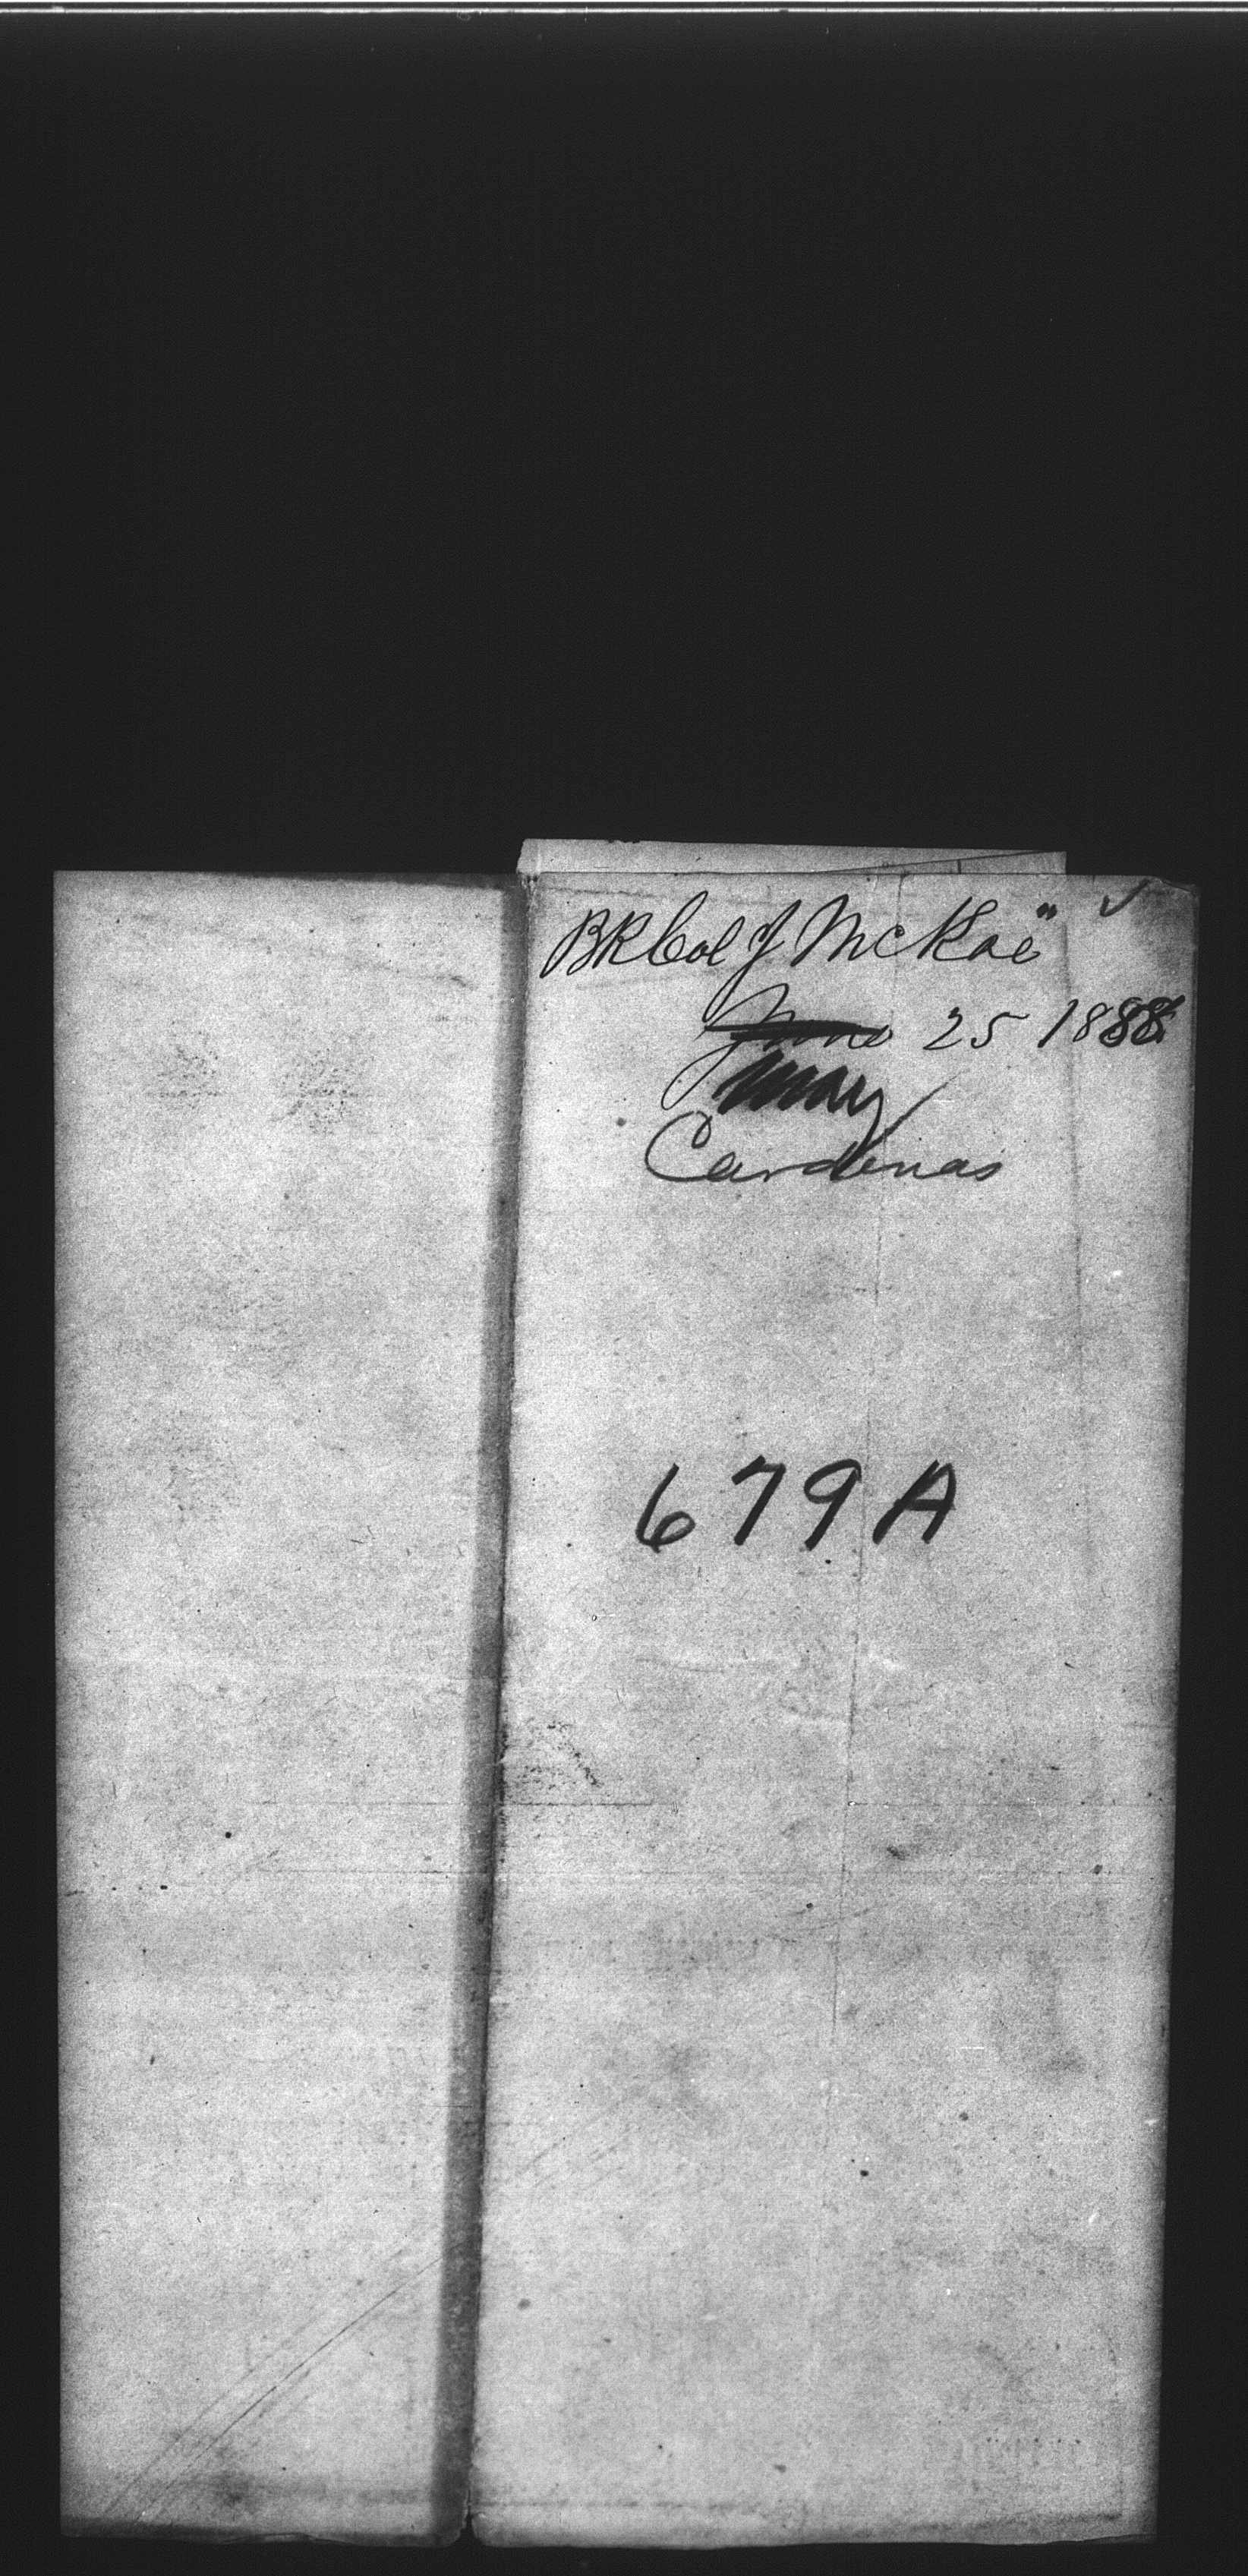 BK Col J. McKae" ✓
June 25 1888
May
Cardenas
679A